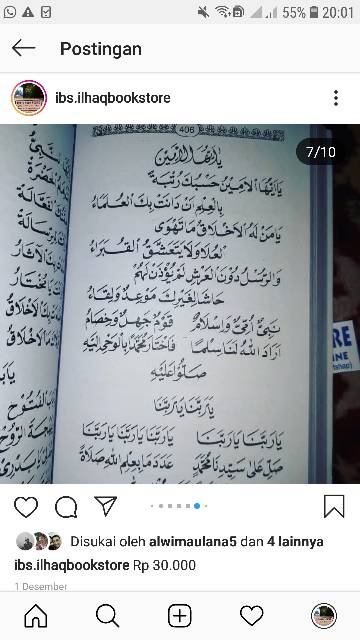 55% 20:01
Postingan
ibs.ilhaqbookstore
7/10
406
يَاأَيُّهَا الْأَمِيْنُ
يَاأَيُّهَا الْأَمِيْنُ حَسْبُكَ رُتْبَةً
بِالْعِلْمِ أَنْ دَانَتْ بِكَ الْعُلَمَاءُ
يَامَنْ لَهُ الْأَخْلَاقُ مَاتَهْوَى
الْعُلَا وَلَا يَتَعَشَّقُ الْكُبَرَاءُ
وَالرُّسْلُ دُوْنَ الْعَرْشِ لَمْ يُؤْذَنْ لَهُمْ
حَاشَا لِغَيْرِكَ مَوْعِدٌ وَلِقَاءُ
نَبِيٌّ أُمِّيٌّ وَإِسْلَامُ قَوْمُ جَهْلٍ وَخِصَامُ
أَرَادَ اللهُ لَنَا سِلْمًا فَاخْتَارَ مُحَمَّدَ بِالْوَحْيِ إِلَيْهِ
صَلُّوْا عَلَيْهِ
يَارَبَّنَا يَارَبَّنَا
يَارَبَّنَا يَارَبَّنَا يَارَبَّنَا يَارَبَّنَا يَارَبَّنَا
صَلِّ عَلَى سَيِّدِنَا مُحَمَّدٍ عَدَدَ مَا بِعِلْمِ اللهِ صَلَاةً
Disukai oleh alwimaulana5 dan 4 lainnya
ibs.ilhaqbookstore Rp 30.000
1 Desember